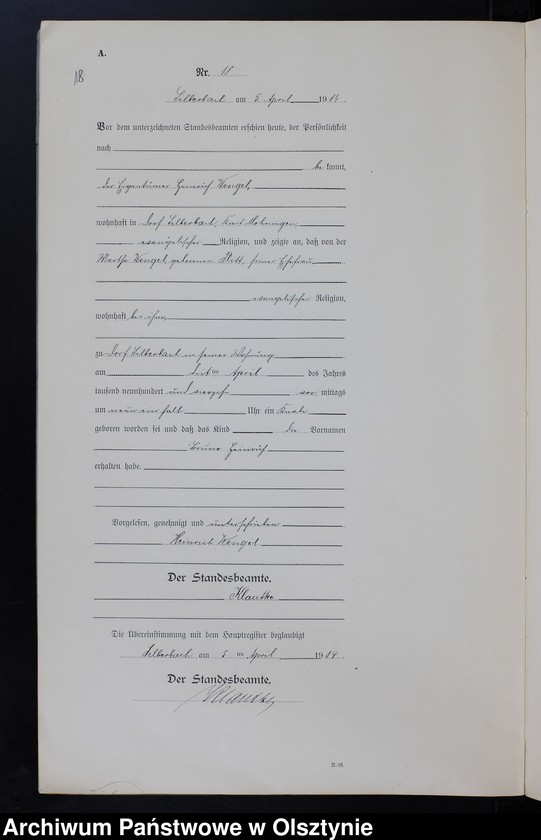 A.
18
Nr. 18
Silberbach am 5 April 1914.
Vor dem unterzeichneten Standesbeamten erschien heute, der Persönlichkeit
nach
be kannt,
der Eigentümer Heinrich Wengel,
wohnhaft in Dorf Silberbach, Kreis Mohrungen,
evangelischer Religion, und zeigte an, daß von der
Martha Wengel, geborenen Plitt, seiner Ehefrau,
evangelischer Religion,
wohnhaft bei ihm,
zu Dorf Silberbach in seiner Wohnung
am dritten April des Jahres
tausend neunhundert und vierzehn vor mittags
um neun ein halb Uhr ein Knabe
geboren worden sei und daß das Kind die Vornamen
Bruno Heinrich
erhalten habe.
Vorgelesen, genehmigt und unterschrieben
Heinrich Wengel
Der Standesbeamte.
Klautke
Die Übereinstimmung mit dem Hauptregister beglaubigt
Silberbach am 5 ten April 1914.
Der Standesbeamte.
Klautke
Archiwum Państwowe w Olsztynie